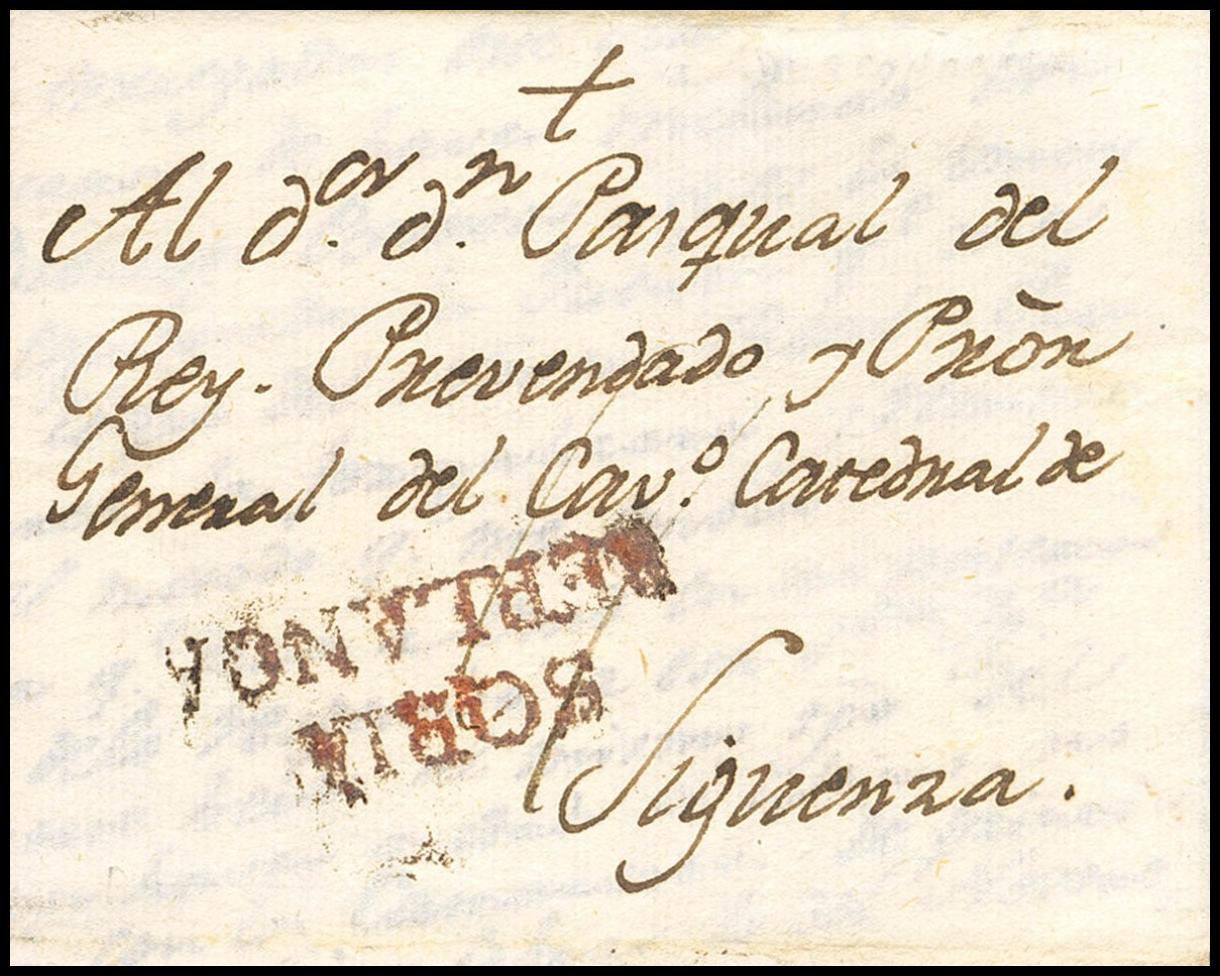 Al d.or d.n Pasqual del
Rey. Prevendado y Prõn
General del Cav.o Catedral de
SORIA
BERLANGA
Siguenza.